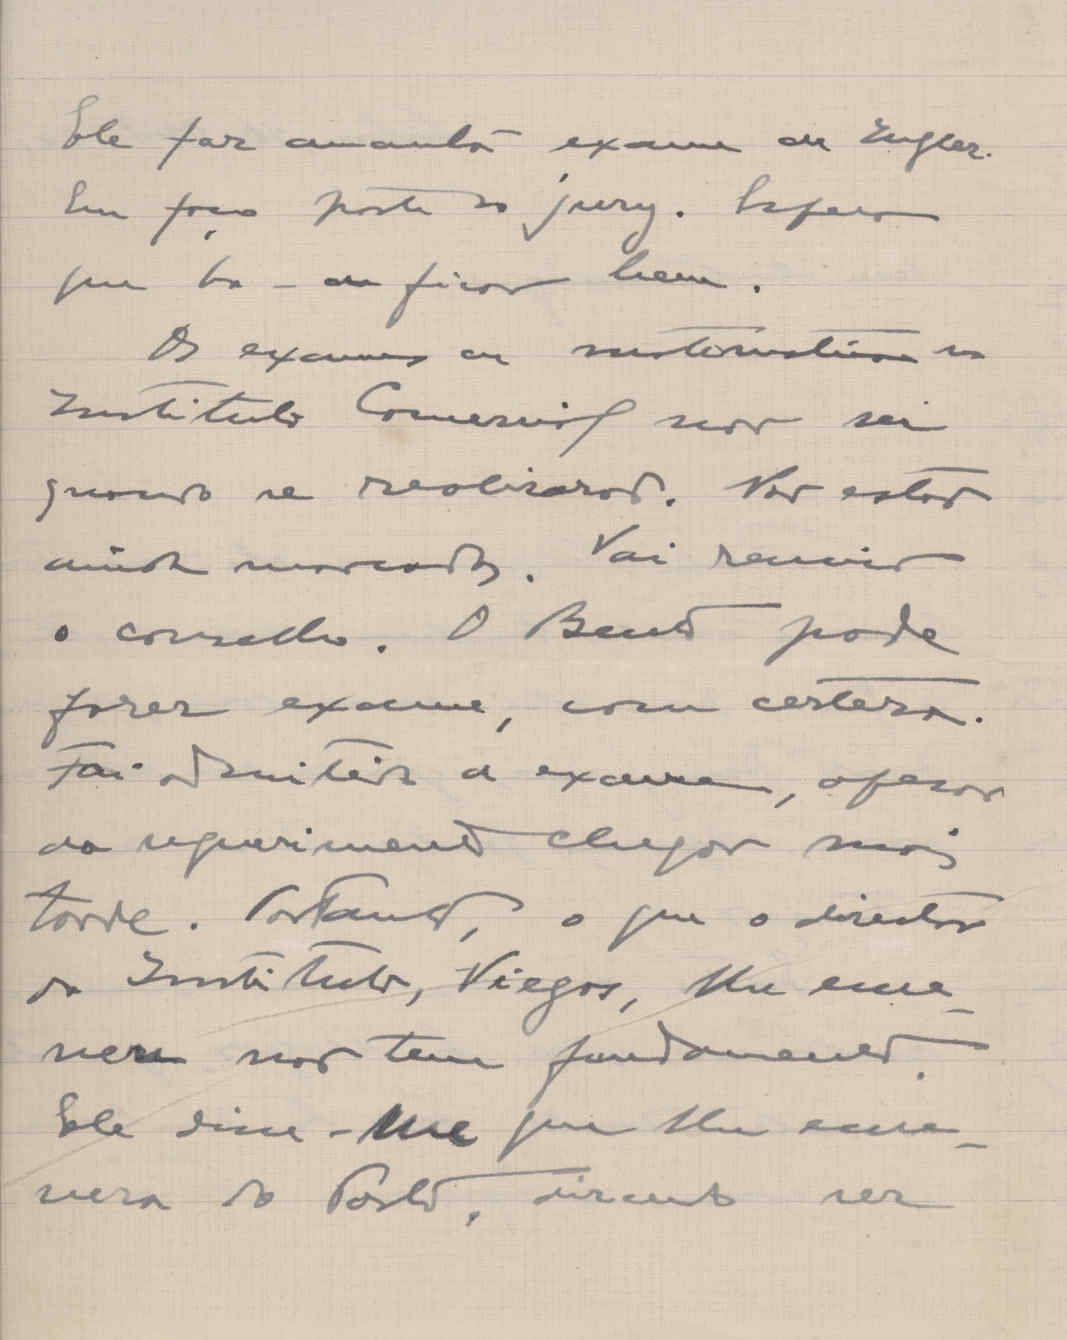 Ele faz amanhã exame de Inglez.
Eu faço parte do jury. Espero
que ha-de ficar bem.
Os exames de matematica no
Instituto Comercial não sei
quando se realizarão. Não estão
ainda marcados. Vai reunir
o conselho. O Bento pode
fazer exame, com certeza.
Foi admitido a exame, apesar
do requerimento chegar mais
tarde. Portanto, o que o director
do Instituto, Viegas, lhe escre-
veu não tem fundamento.
Ele disse-me que lhe escre-
vera do Porto, dizendo ser